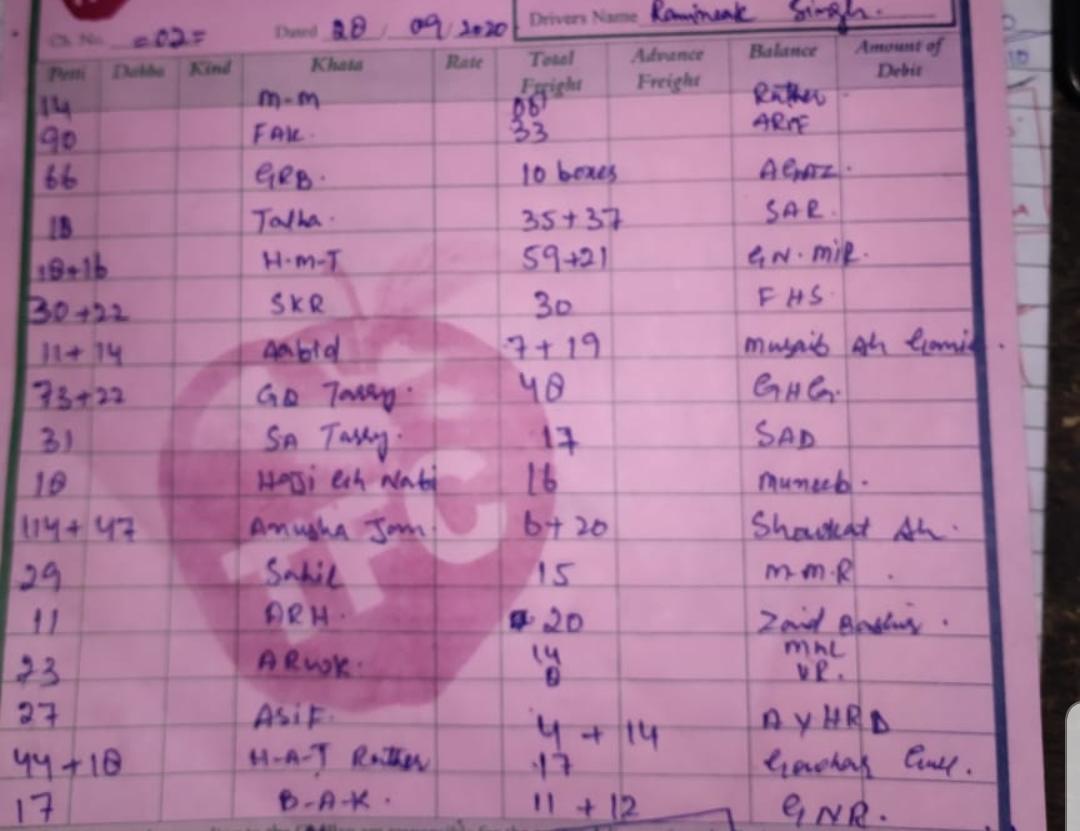 Ch. No. =02= Dated 28 / 09/2020 Drivers Name Singh.
Petti Dabba Kind Khata Rate Total Freight Advance Freight Balance Amount of Debit
14 M-M Rather
90 FAK. 33
66 GRB. 10 boxes
18 Talha. 35+37 SAR.
18+16 H-M-T 59+21 GN. MIR.
30+22 SKR 30 FHS
11+14 Aabid 7+19 Ah
73+22 48 GHG.
31 SA 17 SAD
18 Haji Gh Nabi 16 Muneeb.
114+47 Anusha Jam. 6+20 Showkat Ah.
29 Sahil 15 M-M-R
11 ARH. 20 Zaid Bashir.
23 14
8 VR.
27 ASIF. 4+14
44+18 H-A-T Rather 17 Gull.
17 B-A-K. 11+12 GNR.
TFC